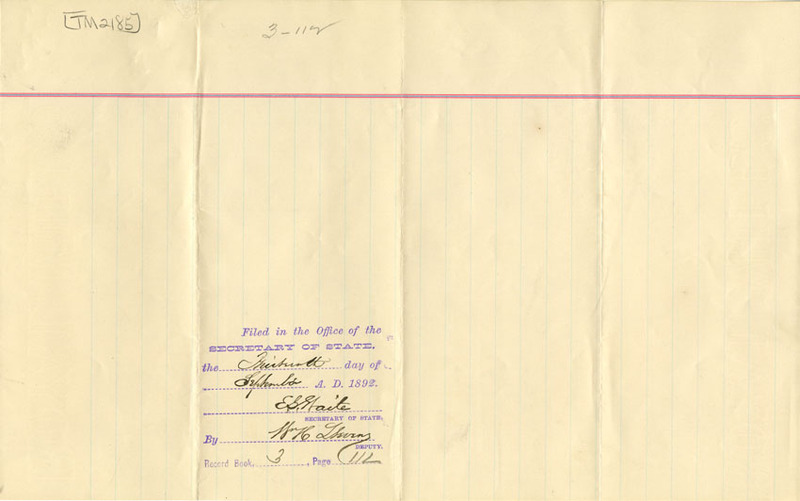 [TM2185]
3-112
Filed in the Office of the
SECRETARY OF STATE,
the day of
A. D. 1892.
E S Waite
SECRETARY OF STATE.
By Wm H
DEPUTY.
Record Book, 3, Page 112